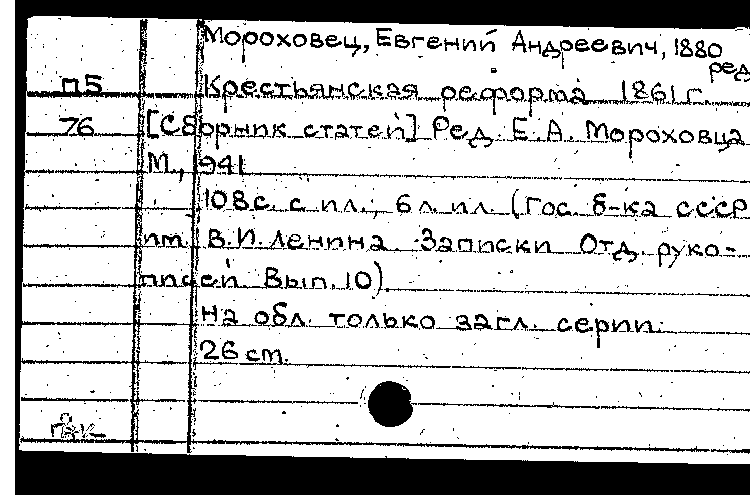 Мороховец, Евгений Андреевич, 1880
ред
п5 Крестьянская реформа 1861 г.
76 [Сборник статей] Ред. Е.А. Мороховца
М., 1941
108 с. с ил.; 6 л. ил. (Гос. б-ка СССР
им. В.И. Ленина. Записки Отд. руко-
писей Вып. 10).
На обл. только загл. серии.
26 см.